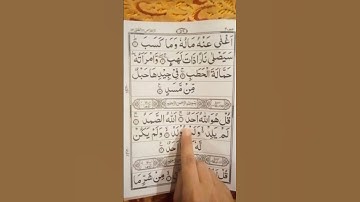 اَغْنٰى عَنْهُ مَالُهٗ وَمَا كَسَبَ
سَيَصْلٰى نَارًا ذَاتَ لَهَبٍ وَّامْرَاَتُهٗ
حَمَّالَةَ الْحَطَبِ فِيْ جِيْدِهَا حَبْلٌ
مِّنْ مَّسَدٍ
قُلْ هُوَ اللّٰهُ اَحَدٌ اَللّٰهُ الصَّمَدُ
لَمْ يَلِدْ وَلَمْ يُوْلَدْ وَلَمْ يَكُنْ
لَّهٗ اَحَدٌ
قُلْ مِنْ شَرِّ مَا